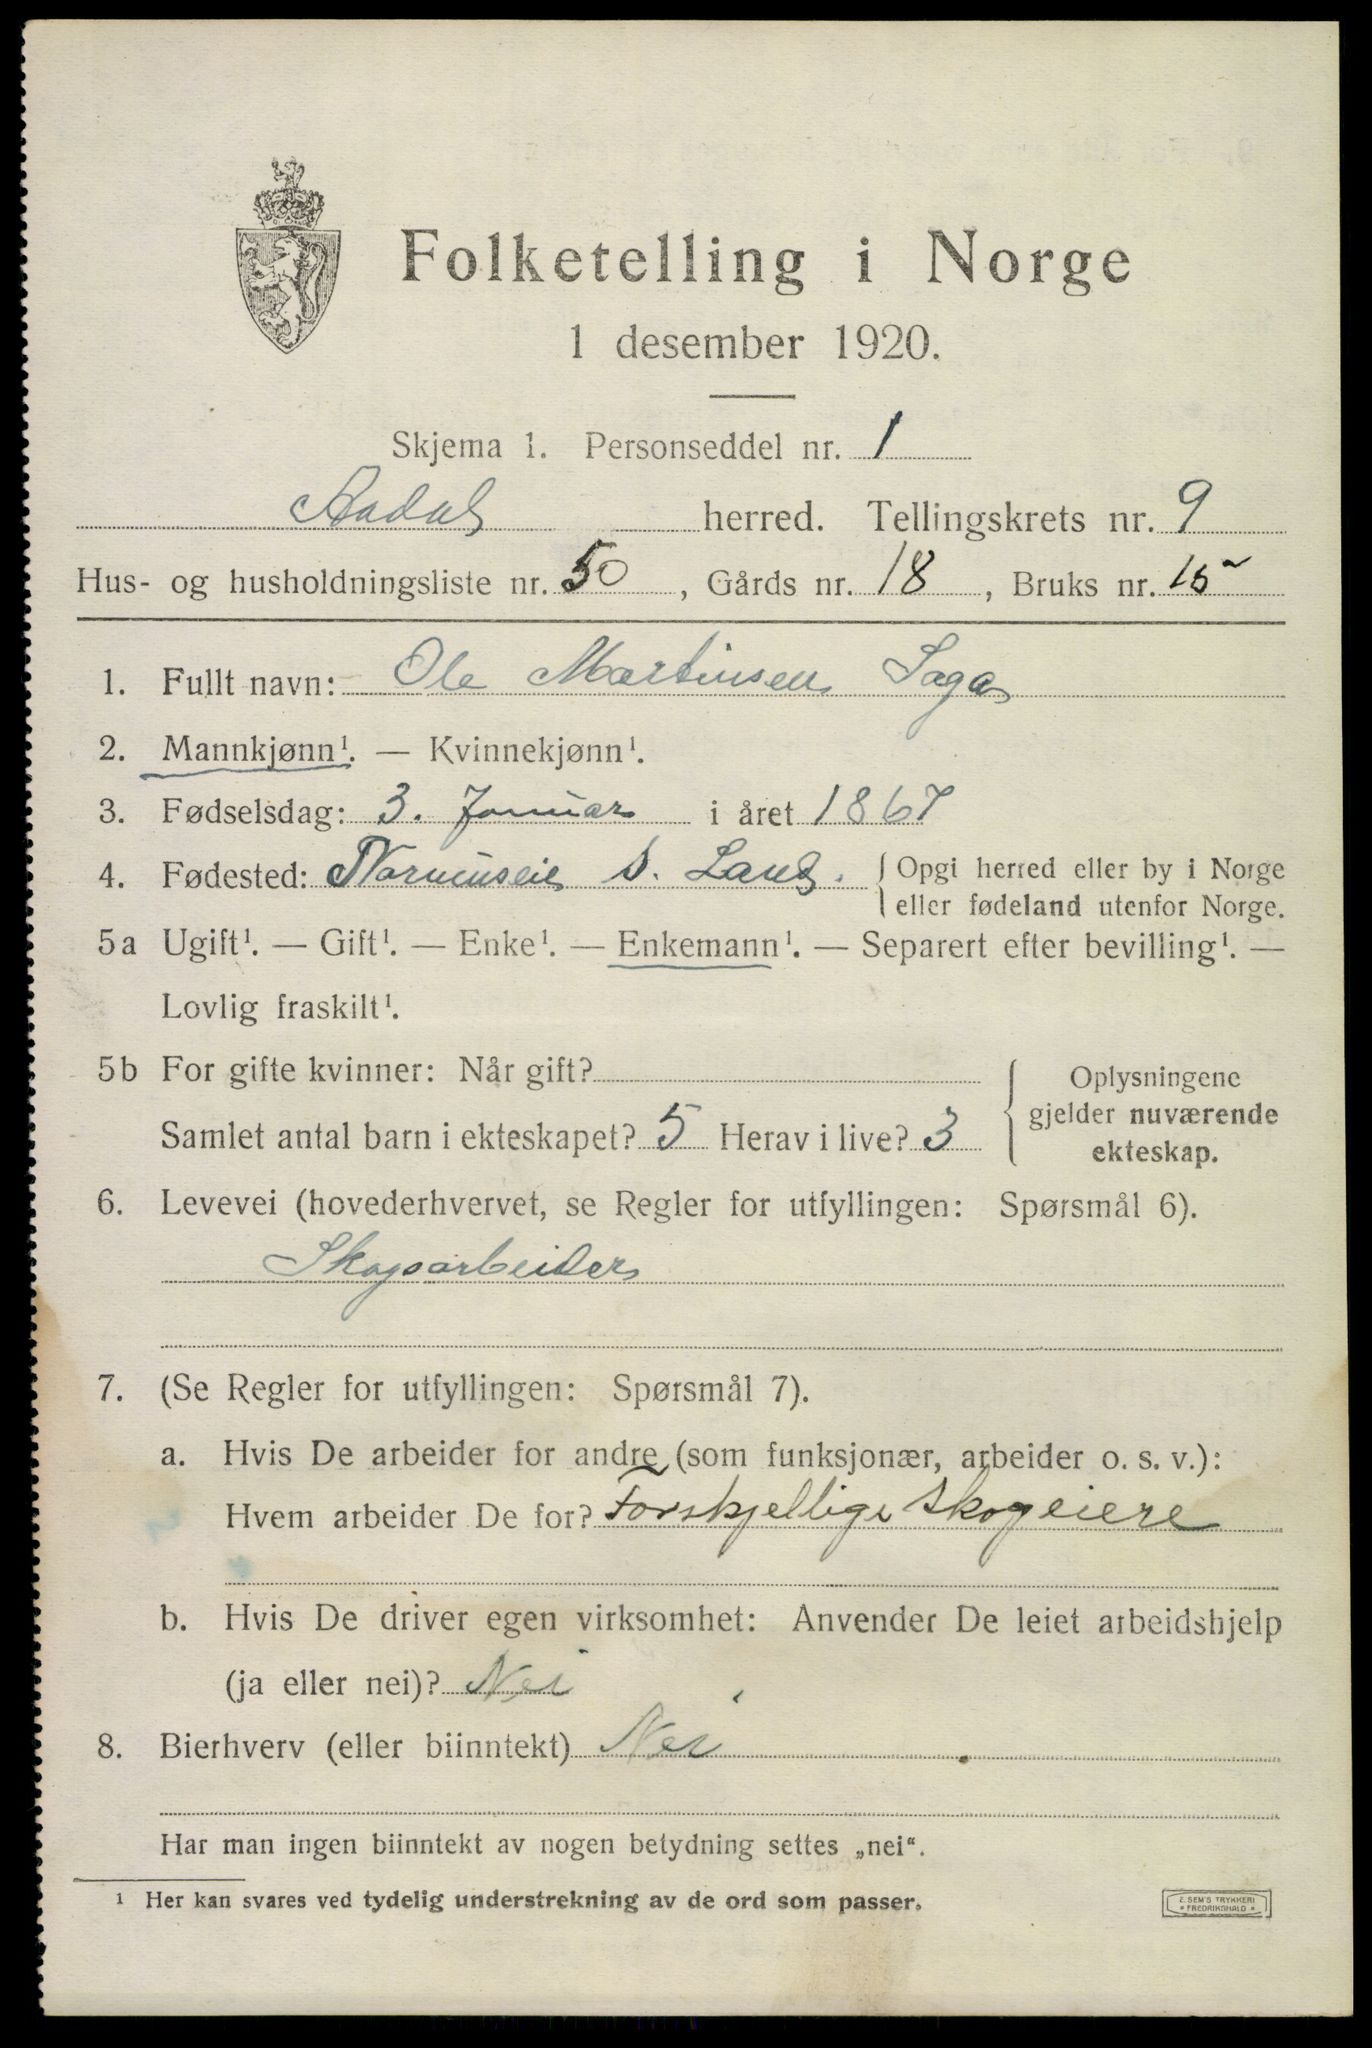 Folketelling i Norge
1 desember 1920.
Skjema 1. Personseddel nr. 1
Aadal herred. Tellingskrets nr. 9
Hus- og husholdningsliste nr. 50, Gårds nr. 18, Bruks nr. 15
1. Fullt navn: Ole Martinsen Saga
2. Mannkjønn¹. — Kvinnekjønn¹.
3. Fødselsdag: 3. Januar i året 1867
4. Fødested: S. Land. { Opgi herred eller by i Norge
eller fødeland utenfor Norge.
5a Ugift¹. — Gift¹. — Enke¹. — Enkemann¹. — Separert efter bevilling¹. —
Lovlig fraskilt¹.
5b For gifte kvinner: Når gift?
Samlet antal barn i ekteskapet? 5 Herav i live? 3
{ Oplysningene
gjelder nuværende
ekteskap.
6. Levevei (hovederhvervet, se Regler for utfyllingen: Spørsmål 6).
Skogsarbeider
7. (Se Regler for utfyllingen: Spørsmål 7).
a. Hvis De arbeider for andre (som funksjonær, arbeider o. s. v.):
Hvem arbeider De for? Forskjellige skogeiere
b. Hvis De driver egen virksomhet: Anvender De leiet arbeidshjelp
(ja eller nei)? Nei
8. Bierhverv (eller biinntekt) Nei
Har man ingen biinntekt av nogen betydning settes „nei“.
¹ Her kan svares ved tydelig understrekning av de ord som passer.
E. SEM'S TRYKKERI
* FREDRIKSHALD *